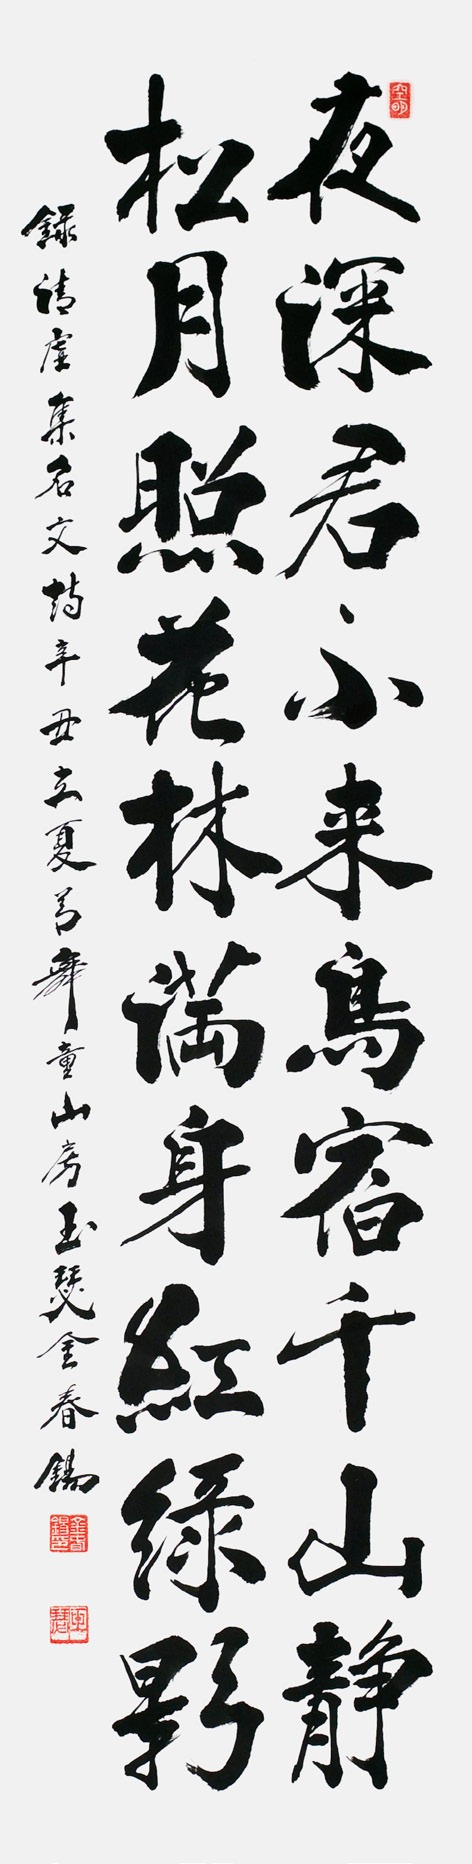 空明
夜深君不来鳥宿千山靜
松月照花林滿身紅綠影
錄清虛集名文詩辛丑立夏舞童山房玉瑟金春錫
金春錫印